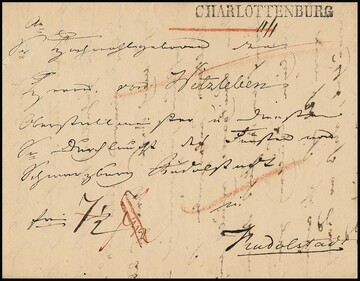 CHARLOTTENBURG
An
Sr Hochwohlgeboren dem
Herrn von Witzleben
Oberstallmeister in diensten
Sr Durchlaucht des Fürsten von
Schwarzburg Rudolstadt
in
frei 7½
Rudolstadt